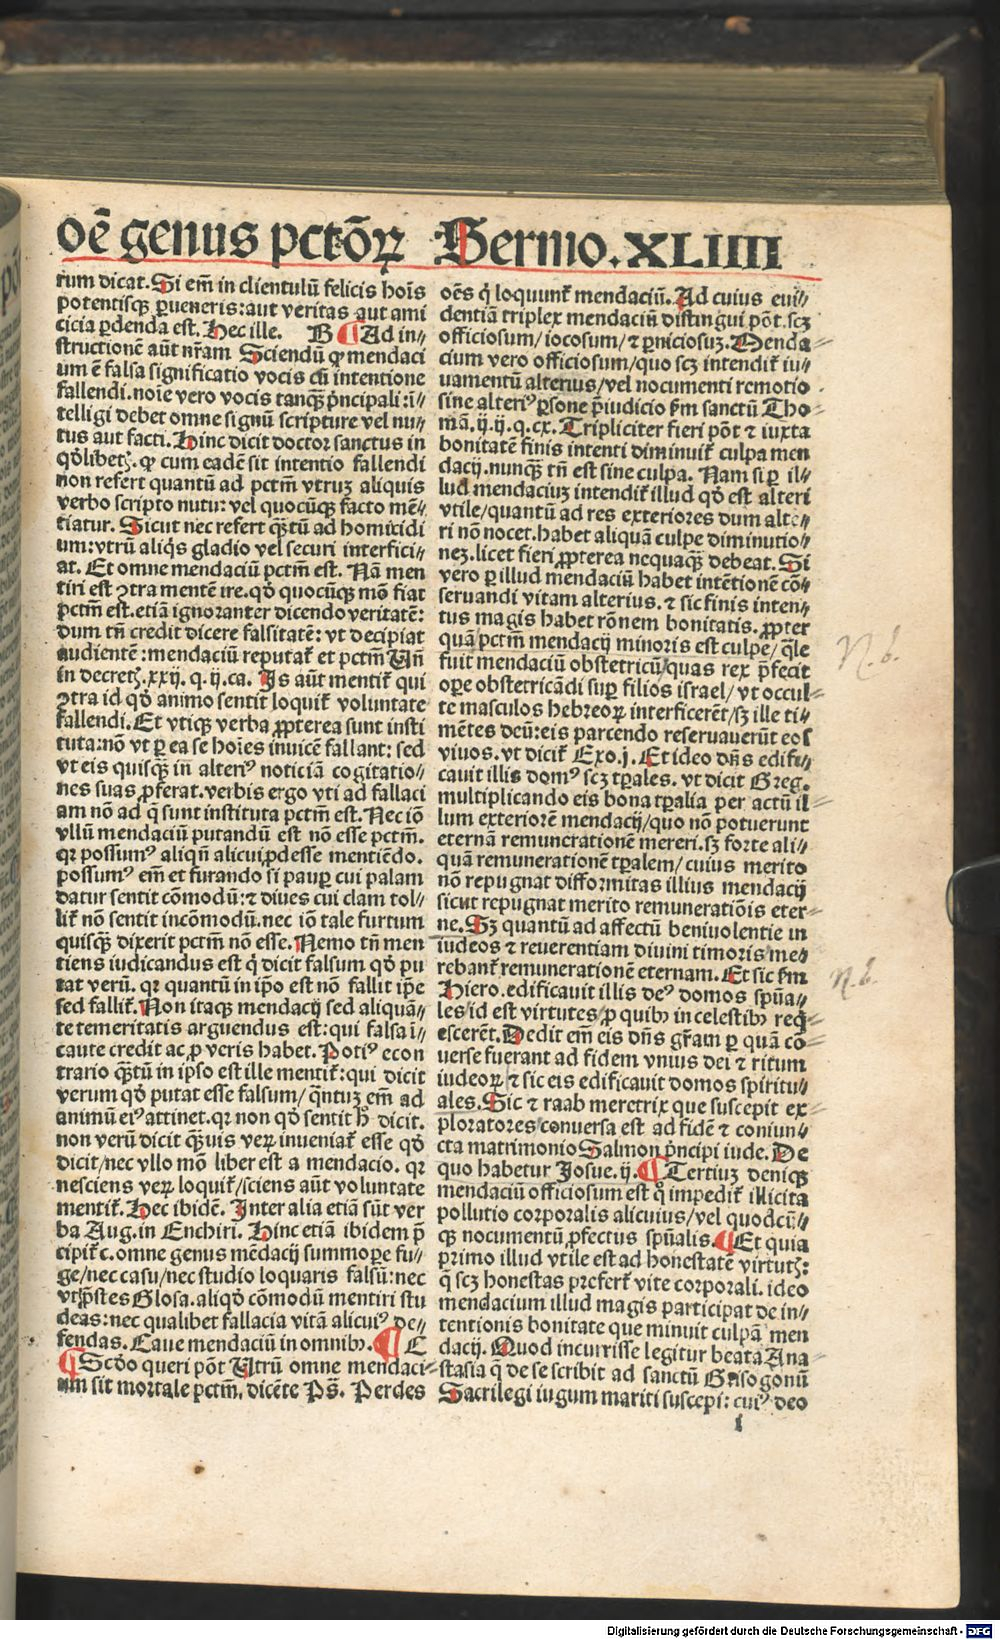 oē genus pctōꝝ Sermo. XLIIII
rum dicat. Si em̄ in clientulū felicis hoīs
potentisqꝫ ꝑueneris: aut veritas aut ami
cicia ꝑdenda est. Hec ille. B ¶ Ad in⸗
structionē aūt nr̄am Sciendū ꝙ mendaci
um ē falsa significatio vocis cū intentione
fallendi. noīe vero vocis tanqꝫ̄ pͥncipali ⁊ī⸗
telligi debet omne signū scripture vel nu⸗
tus aut facti. Hinc dicit doctor sanctus in
qͦlibetꝭ. ꝙ cum eadē sit intentio fallendi
non refert quantū ad pctm̄ vtruꝫ aliquis
verbo scripto nutu: vel quocūqꝫ facto mē⸗
tiatur. Sicut nec refert qꝫ̄tū ad homicidi
um: vtrū aliqͥs gladio vel securi interfici⸗
at. Et omne mendaciū pctm̄ est. Nā men
tiri est ꝯtra mentē ire. qͦ quocūqꝫ mō fiat
pctm̄ est. etiā ignoranter dicendo veritatē:
dum tn̄ credit dicere falsitatē: vt decipiat
audientē: mendaciū reputat᷑ et pctm̄ Un̄
in decretꝭ. xxij. q. ij. ca. Is aūt mentit᷑ qui
ꝯtra id qͦ animo sentit loquit᷑ voluntate
fallendi. Et vtiqꝫ verba ꝓpterea sunt insti
tuta: nō vt ꝑ ea se hoīes inuicē fallant: sed
vt eis quisqꝫ̄ in alteriꝰ noticiā cogitatio⸗
nes suas ꝓferat. verbis ergo vti ad fallaci
am nō ad q̄ sunt instituta pctm̄ est. Nec iō
vllū mendaciū putandū est nō esse pctm̄.
qꝛ possumꝰ aliqn̄ alicui ꝓdesse mentiēdo.
possumꝰ em̄ et furando si pauꝑ cui palam
datur sentit cōmodū: ⁊ diues cui clam tol⸗
lit᷑ nō sentit incōmodū. nec iō tale furtum
quisqꝫ̄ dixerit pctm̄ nō esse. Nemo tn̄ men
tiens iudicandus est q̇ dicit falsum qͦ pu
tat verū. qꝛ quantū in ip̄o est nō fallit ip̄e
sed fallit᷑. Non itaqꝫ mendacij sed aliquā⸗
te temeritatis arguendus est: qui falsa ī⸗
caute credit ac ꝓ veris habet. Potiꝰ econ
trario qꝫ̄tū in ipso est ille mentit᷑: qui dicit
verum qͦ putat esse falsum/ qn̄tuꝫ em̄ ad
animū eiꝰ attinet. qꝛ non qͦ sentit hͦ dicit.
non verū dicit qꝫ̄uis veꝝ inueniat᷑ esse qͦ
dicit/ nec vllo mō liber est a mendacio. qꝛ
nesciens veꝝ loquit᷑/ sciens aūt voluntate
mentit᷑. Hec ibidē. Inter alia etiā sūt ver
ba Aug. in Enchiri. Hinc etiā ibidem p̄
cipit᷑ c. omne genus mēdacij summoꝑe fu⸗
ge/ nec casu/ nec studio loquaris falsū: nec
vt p̄stes Glosa. aliqͦ cōmodū mentiri stu
deas: nec qualibet fallacia vitā alicuiꝰ de⸗
fendas. Caue mendaciū in omnibꝫ. ¶ C
¶ Scḋo queri pōt Utrū omne mendaci⸗
um sit mortale pctm̄, dicēte Ps̄. Perdes
oēs q̇ loquunt᷑ mendaciū. Ad cuius eui⸗
dentiā triplex mendaciū distingui pōt. scꝫ
officiosum/ iocosum/ ⁊ ꝑniciosuꝫ. Menda⸗
cium vero officiosum/ quo scꝫ intendit᷑ iu⸗
uamentū alterius/ vel nocumenti remotio
sine alteriꝰ ꝑsone p̄iudicio ẜm sanctū Tho⸗
mā. ij. ij. q. cx. Tripliciter fieri pōt ⁊ iuxta
bonitatē finis intenti diminuit᷑ culpa men
dacij. nunqꝫ̄ tn̄ est sine culpa. Nam si ꝑ il⸗
lud mendaciuꝫ intendit᷑ illud qͦ est alteri
vtile/ quantū ad res exteriores dum alte⸗
ri nō nocet. habet aliquā culpe diminutio⸗
neꝫ. licet fieri ꝓpterea nequaqꝫ̄ debeat. Si
vero ꝑ illud mendaciū habet intētionē cō⸗
seruandi vitam alterius. ⁊ sic finis inten⸗
tus magis habet rōnem bonitatis. ꝓpter
quā pctm̄ mendacij minoris est culpe/ q̄le
fuit mendaciū obstetricū/ quas rex p̄fecit
oꝑe obstetricādi suꝑ filios israel/ vt occul⸗
te masculos hebreoꝝ interficerēt/ sꝫ ille ti⸗
mētes deū: eis parcendo reseruauerūt eos
viuos. vt dicit᷑ Exo. j. Et ideo dn̄s edifi⸗
cauit illis domꝰ scꝫ tꝑales. vt dicit Greg.
multiplicando eis bona tꝑalia per actū il⸗
lum exteriorē mendacij/ quo nō potuerunt
eternā remunerationē mereri. sꝫ forte ali⸗
quā remunerationē tꝑalem/ cuius merito
nō repugnat difformitas illius mendacij
sicut repugnat merito remuneratiōis eter⸗
ne. Sꝫ quantū ad affectū beniuolentie in
iudeos ⁊ reuerentiam diuini timoris me⸗
rebant᷑ remunerationē eternam. Et sic ẜm
Hiero. edificauit illis deꝰ domos spūa⸗
les/ id est virtutes/ ꝓ quibꝫ in celestibꝫ req̇⸗
escerēt. Dedit em̄ eis dn̄s gr̄am ꝑ quā cō⸗
uerse fuerant ad fidem vnius dei ⁊ ritum
iudeoꝝ/ ⁊ sic eis edificauit domos spiritu⸗
ales. Sic ⁊ raab meretrix que suscepit ex⸗
ploratores conuersa est ad fidē ⁊ coniun⸗
cta matrimonio Salmon pͥncipi iude. De
quo habetur Josue. ij. ¶ Tertiuꝫ deniqꝫ
mendaciū officiosum est qͦ impedit᷑ illicita
pollutio corporalis alicuius/ vel quodcū⸗
qꝫ nocumentū ꝓfectus spūalis. ¶ Et quia
primo illud vtile est ad honestatē virtutꝭ:
q̄ scꝫ honestas prefert᷑ vite corporali. ideo
mendacium illud magis participat de in⸗
tentionis bonitate que minuit culpā men
dacij. Quod incurrisse legitur beata Ana⸗
stasia q̄ de se scribit ad sanctū Grisogonū
Sacrilegi iugum mariti suscepi: cuiꝰ deo
l
N. b.
N. b.
Digitalisierung gefördert durch die Deutsche Forschungsgemeinschaft - DFG